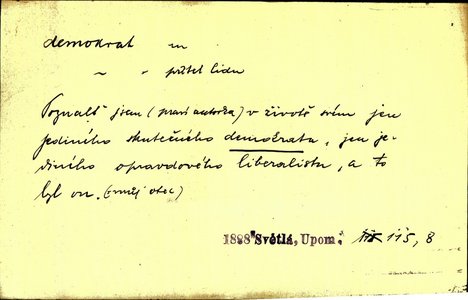 demokrat m
~ " přítel lidu
Poznalť jsem (praví autorka) v životě svém jen
jediného skutečného demokrata, jen je-
diného opravdového liberalistu, a to
byl on. (můj otec)
1888 Světlá, Upom. 115, 8